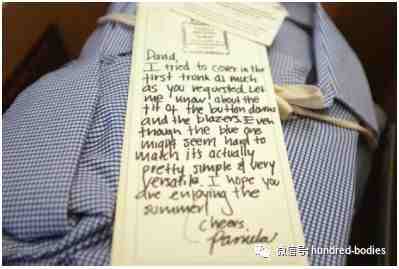 David,
I tried to cover in the
first trunk as much
as you requested. Let
me know about the
fit of the button downs
and the blazers. Even
though the blue one
might seem hard to
match it's actually
pretty simple & very
versatile. I hope you
are enjoying the
summer!
Cheers,
Pamela
微信号: hundred-bodies